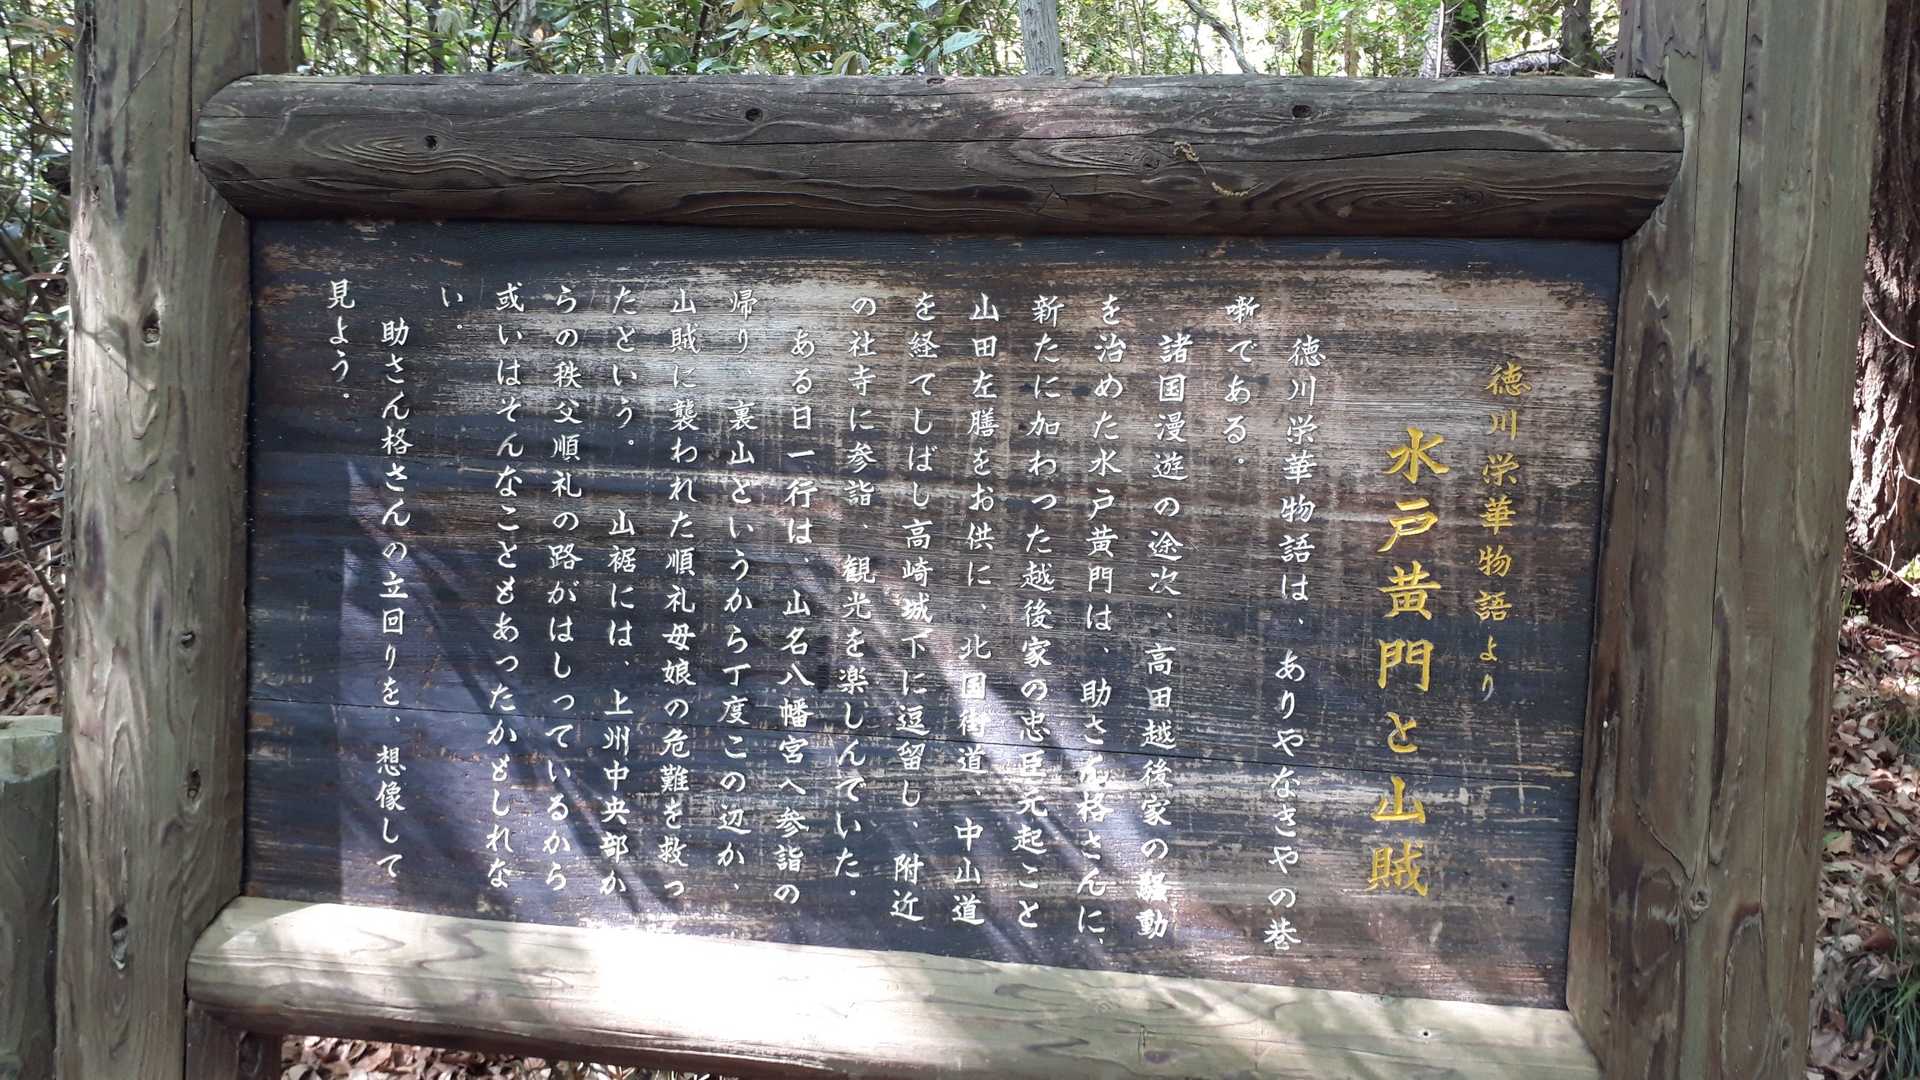 徳川栄華物語より
水戸黄門と山賊
徳川栄華物語は、ありやなきやの巷
噺である。
諸国漫遊の途次、高田越後家の騒動
を治めた水戸黄門は、助さん格さんに、
新たに加わった越後家の忠臣元起こと
山田左膳をお供に、北国街道、中山道
を経てしばし高崎城下に逗留し、附近
の社寺に参詣、観光を楽しんでいた。
ある日一行は、山名八幡宮へ参詣の
帰り、裏山というから丁度この辺か、
山賊に襲われた順礼母娘の危難を救っ
たという。山裾には、上州中央部か
らの秩父順礼の路がはしっているから
或いはそんなこともあったかもしれな
い。
助さん格さんの立回りを、想像して
見よう。